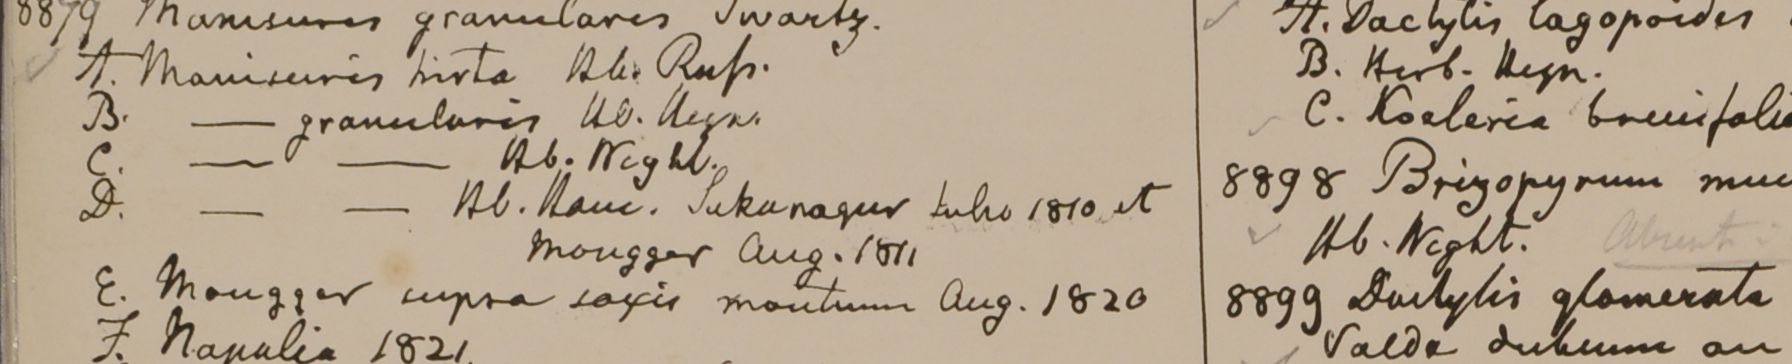 8879 Manisuris granularis Swartz.
A. Manisuris hirta Hb. Rufs.
B. — granularis Hb. Heyn.
C. — — Hb. Wight.
D. — — Hb. Ham. Sukanagur Julio 1810 et
Mougger Aug. 1811
E. Mougger supra saxis montium Aug. 1820
F. Napalia 1821
A. Dactylis lagopoides
B. Herb. Heyn.
C. Koeleria brevifolia
8898 Brizopyrum muc
Hb. Wight. Absent.
8899 Dactylis glomerata
Valde dubium an